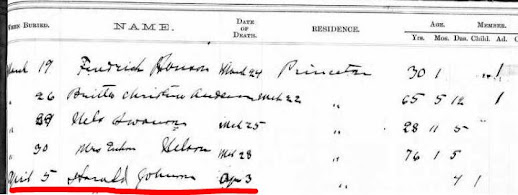 WHEN BURIED. NAME. DATE OF DEATH. RESIDENCE. AGE. MEMBER.
Yrs. Mos. Das. Child. Ad.
19 Fredrick March 24 Princeton 30 1 1
" 26 Christine Anderson Mch 22 " 65 5 12 1
" 29 Nels Swanson Mch 25 " 28 11 5
" 30 Mrs Nelson Mch 28 " 76 1 5
April 5 Harald Johnson Apr 3 " 1